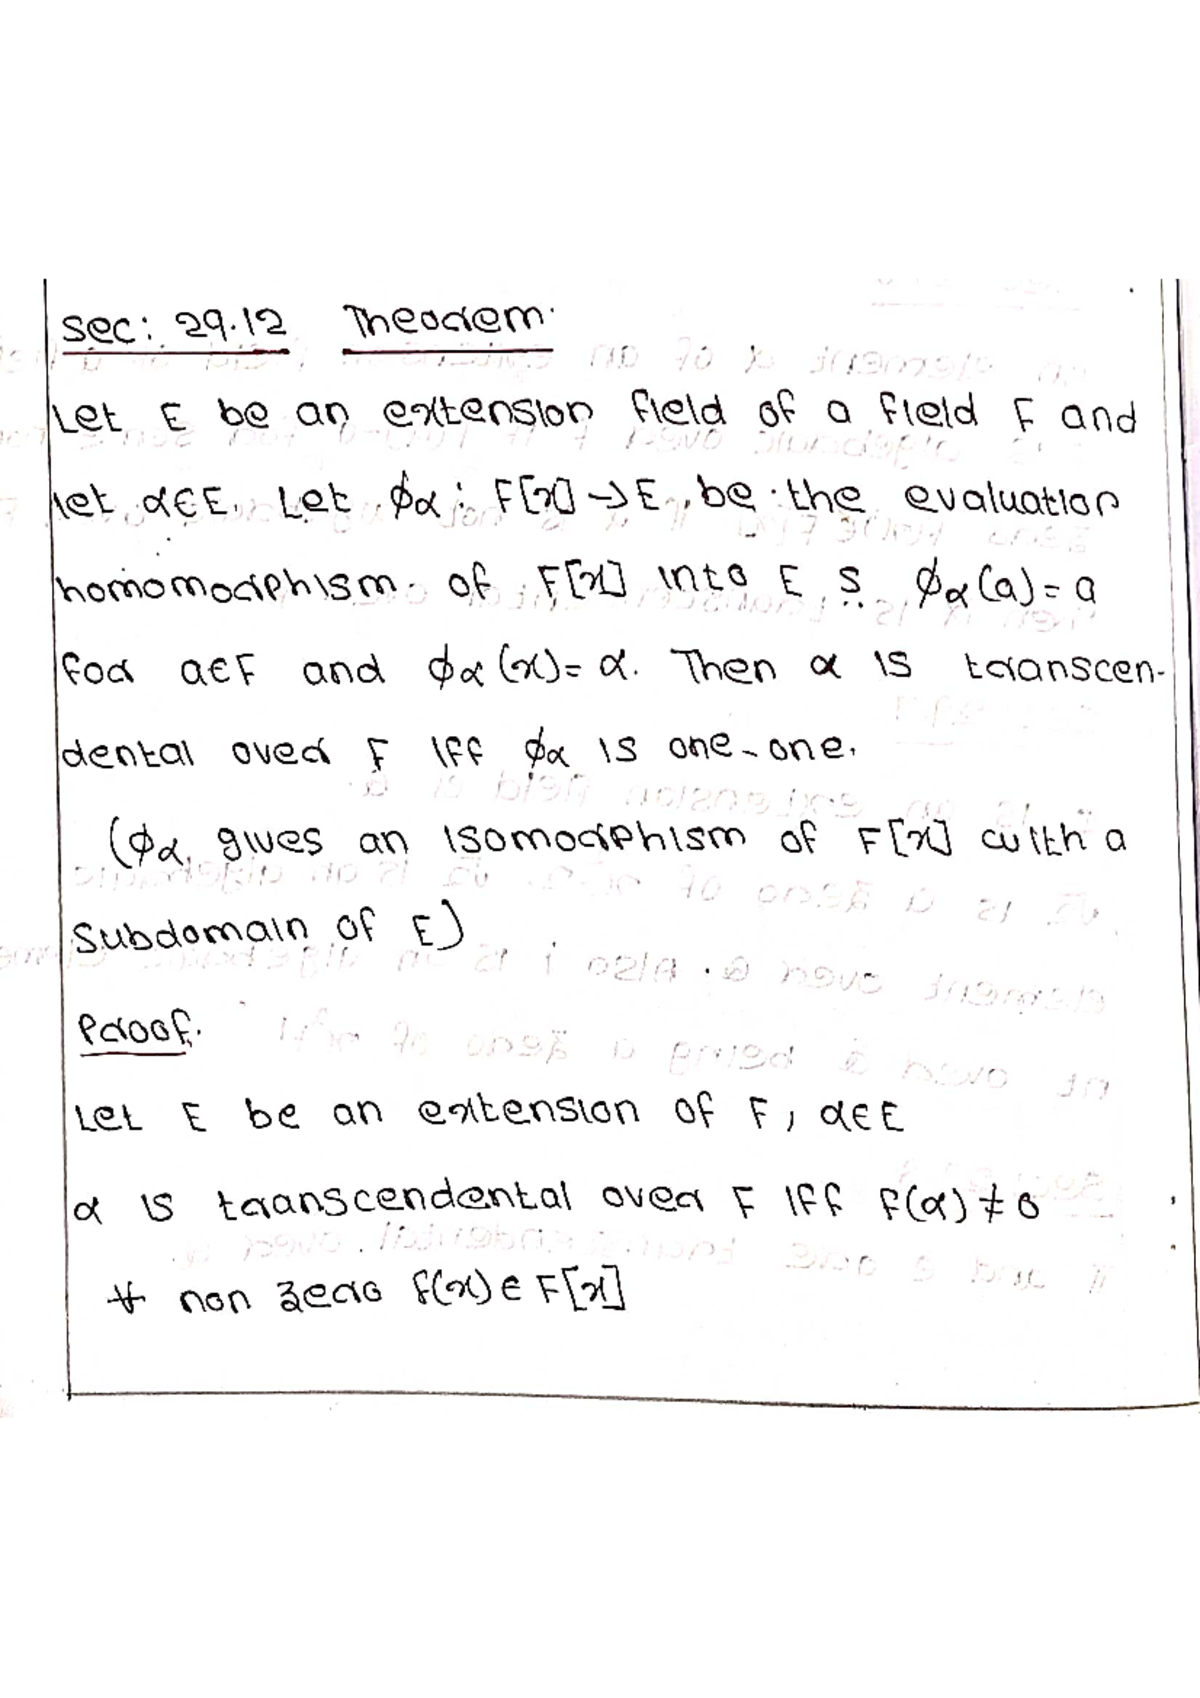 Sec: 29.12 Theorem.
Let E be an extension field of a field F and
let α∈E. Let φα : F[x] → E, be the evaluation
homomorphism of F[x] into E S φα(a) = a
for a∈F and φα(x) = α. Then α is transcen-
dental over F iff φα is one-one.
(φα gives an isomorphism of F[x] with a
subdomain of E)
Proof.
Let E be an extension of F, α∈E
α is transcendental over F iff f(α) ≠ 0
∀ non zero f(x) ∈ F[x]